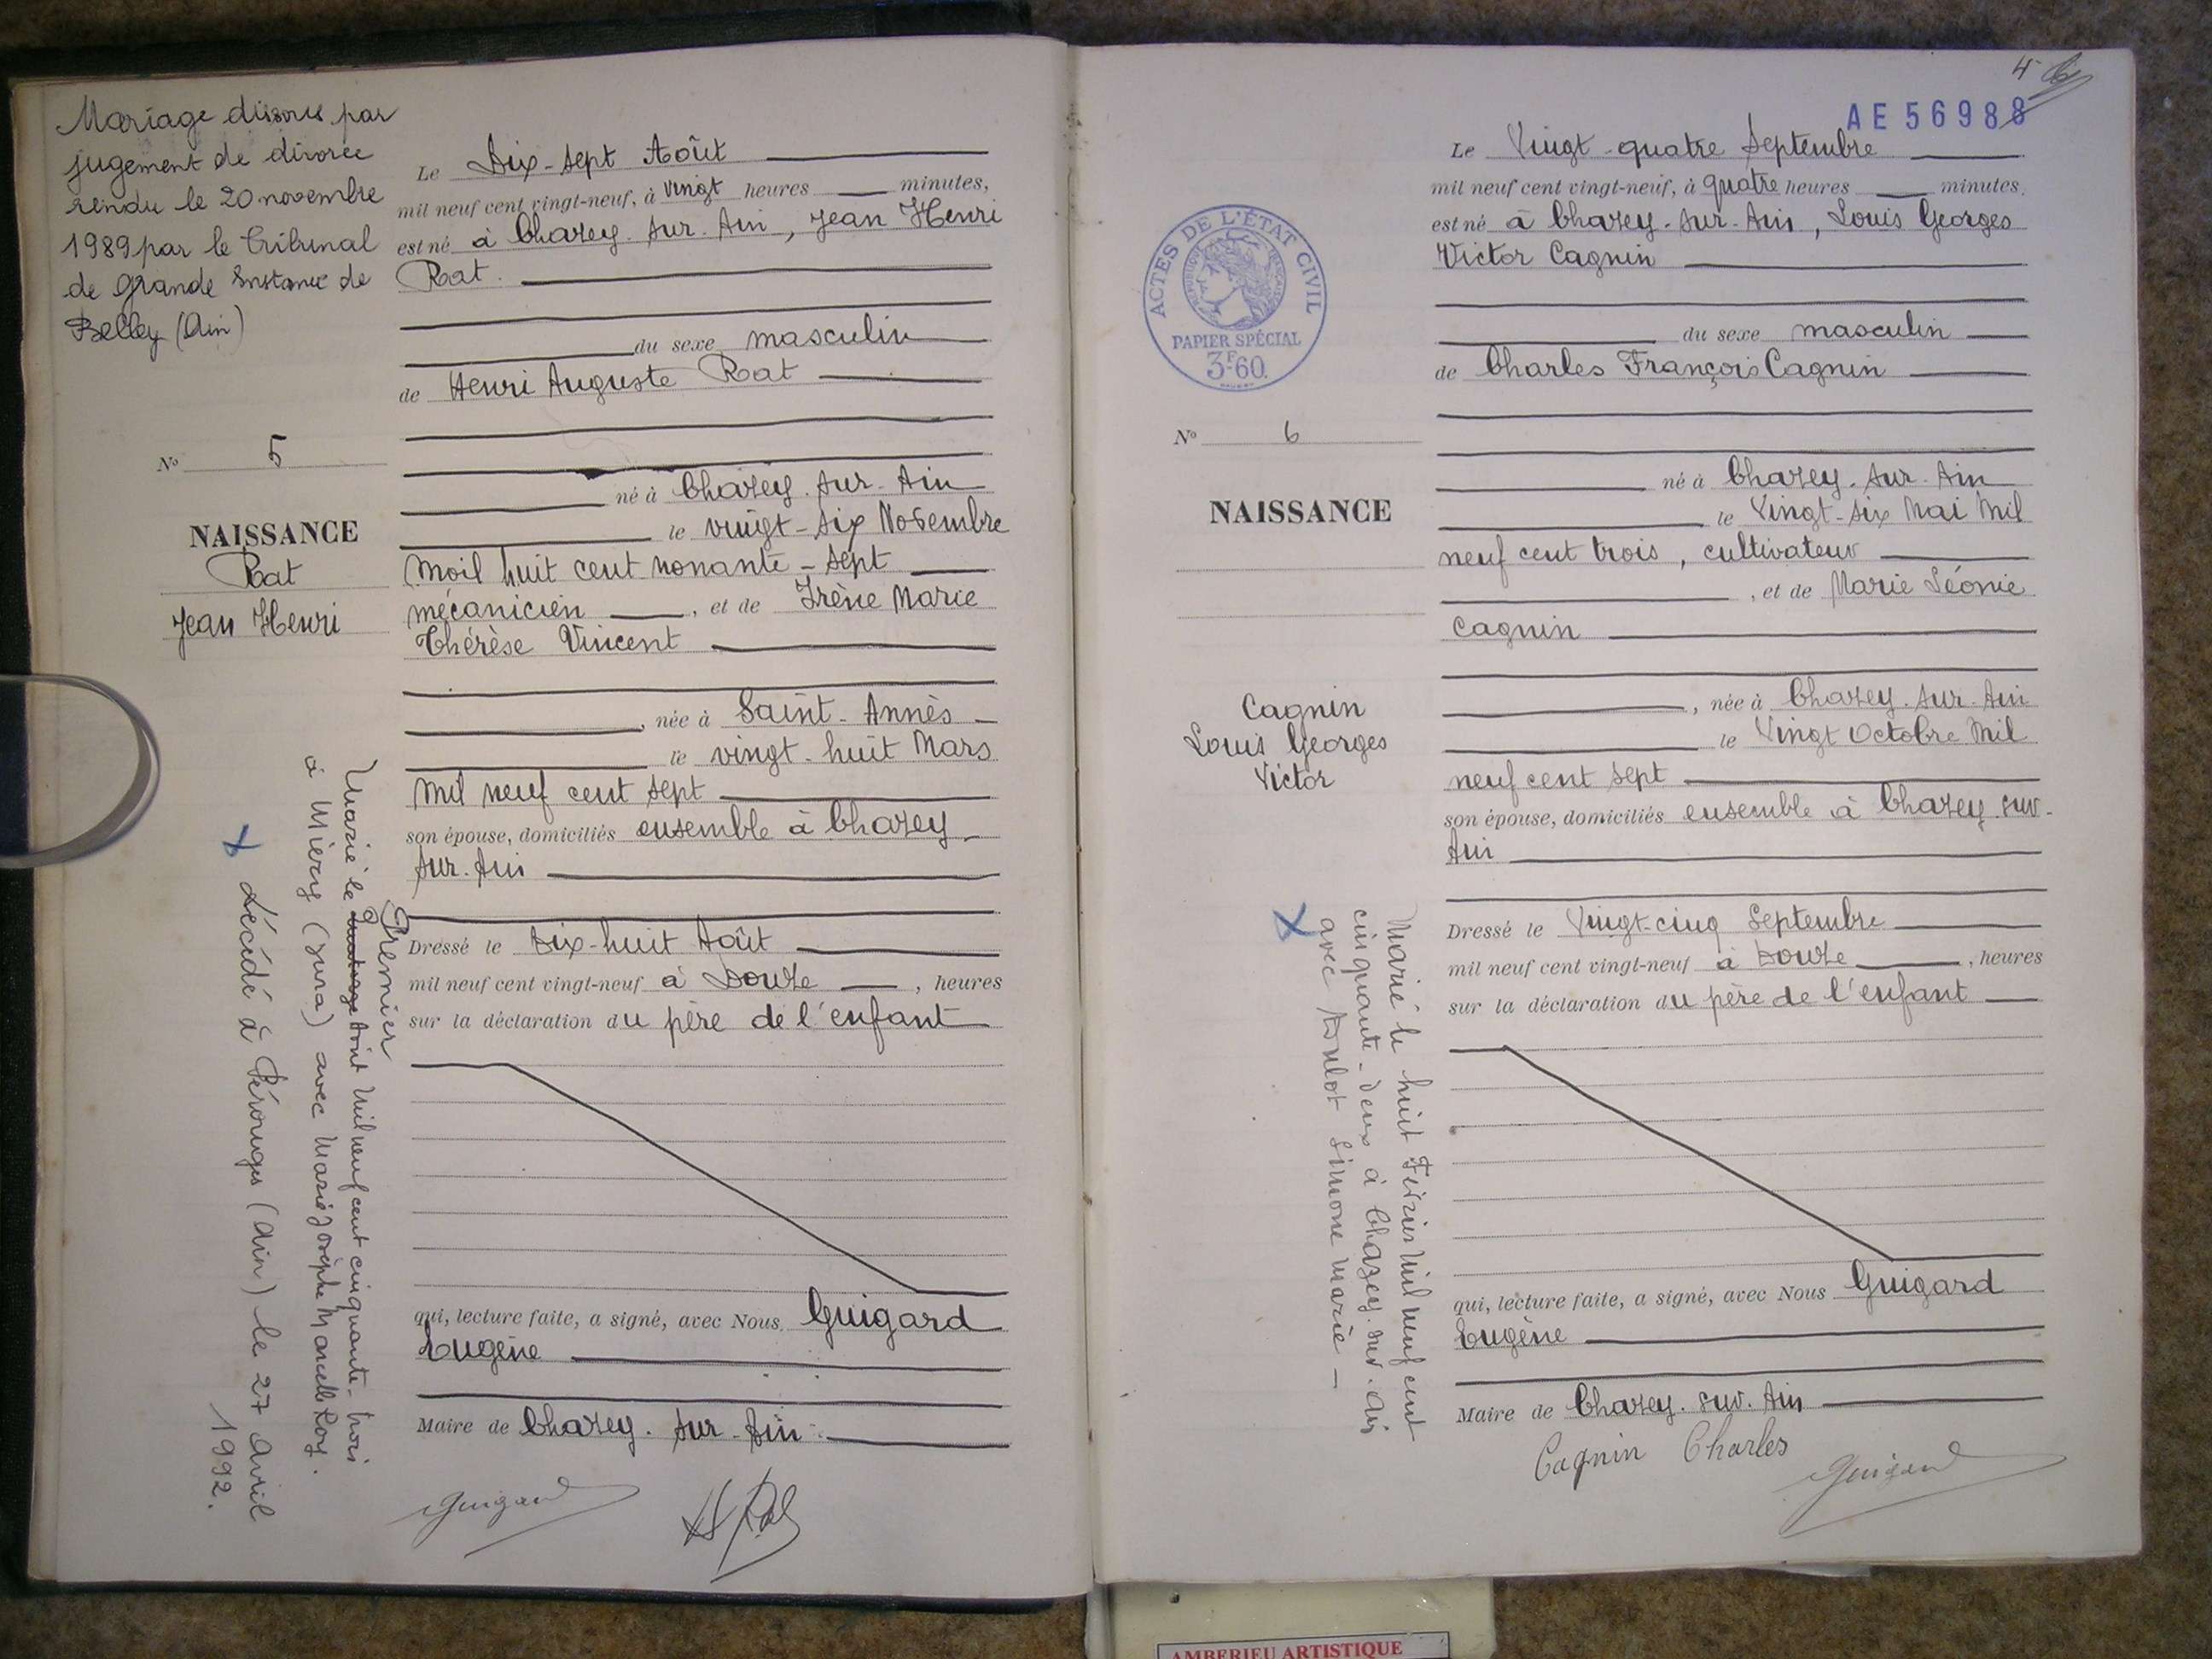 Mariage dissous par
jugement de divorce
rendu le 20 novembre
1989 par le Tribunal
de Grande Instance de
Belley (Ain)
N° 5
NAISSANCE
Rat
Jean Henri
Marié le Premier Août Mil neuf cent cinquante-trois
à Miery (Jura) avec Marie Josèphe Marcelle Roy.
X Décédé à Pérouges (Ain) le 27 avril
1992.
Le Dix-sept Août
mil neuf cent vingt-neuf, à vingt heures minutes,
est né à Chazey-sur-Ain, Jean Henri
Rat.
du sexe masculin
de Henri Auguste Rat
né à Chazey-sur-Ain
le vingt-six Novembre
Mil huit cent nonante-sept
mécanicien , et de Irène Marie
Thérèse Vincent
, née à Saint-Annès
le vingt-huit Mars
Mil neuf cent sept
son épouse, domiciliés ensemble à Chazey-
sur-Ain
Dressé le Dix-huit Août
mil neuf cent vingt-neuf à Douze , heures
sur la déclaration du père de l'enfant
qui, lecture faite, a signé, avec Nous, Guigard
Eugène
Maire de Chazey-sur-Ain
Guigard
H Rat
4
AE 56988
ACTES DE L'ÉTAT CIVIL
RÉPUBLIQUE FRANÇAISE
PAPIER SPÉCIAL
3F60.
N° 6
NAISSANCE
Cagnin
Louis Georges
Victor
X Marié le huit Février Mil neuf cent
cinquante-deux à Chazey-sur-Ain
avec Simone Marie
Le Vingt-quatre Septembre
mil neuf cent vingt-neuf, à quatre heures minutes,
est né à Chazey-sur-Ain, Louis Georges
Victor Cagnin
du sexe masculin
de Charles François Cagnin
né à Chazey-sur-Ain
le Vingt-six Mai Mil
neuf cent trois, cultivateur
, et de Marie Léonie
Cagnin
, née à Chazey-sur-Ain
le Vingt Octobre Mil
neuf cent sept
son épouse, domiciliés ensemble à Chazey-sur-
Ain
Dressé le Vingt-cinq Septembre
mil neuf cent vingt-neuf à Douze , heures
sur la déclaration du père de l'enfant
qui, lecture faite, a signé, avec Nous Guigard
Eugène
Maire de Chazey-sur-Ain
Cagnin Charles
Guigard
AMBERIEU ARTISTIQUE